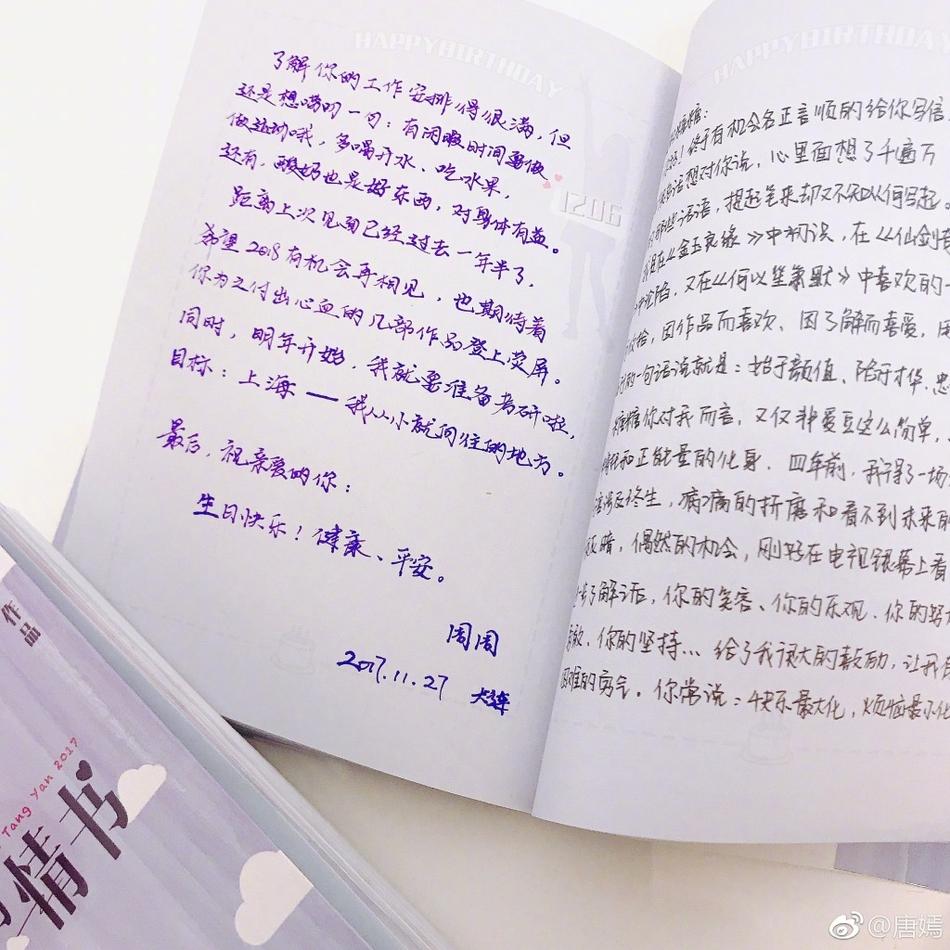 HAPPYBIRTHDAY
了解你的工作安排得很满，但
还是想唠叨一句：有闲暇时间要做
做运动哦，多喝开水、吃水果，
还有，酸奶也是好东西，对身体有益。
距离上次见面已经过去一年半了，
希望2018有机会再相见，也期待着
你为之付出心血的几部作品登上荧屏。
同时，明年开始，我就要准备考研啦，
目标：上海——我从小就向往的地方。
最后，祝亲爱的你：
生日快乐！健康、平安。
周周
2017.11.27 大连
1206
HAPPYBIRTHDAY
糖糖：
！终于有机会名正言顺的给你写信
话想对你说，心里面想了千遍万
话语，提起笔来却又不知从何写起。
是在《金玉良缘》中初识，在《仙剑
中沦陷，又在《何以笙箫默》中喜欢的一
，因作品而喜欢、因了解而喜爱，用
的一句话说就是：始于颜值、陷于才华、忠
糖糖你对我而言，又仅非爱豆这么简单，
和正能量的化身．四年前，我得了一场
终生，病痛的折磨和看不到未来的
暗，偶然的机会，刚好在电视银幕上看
步了解之后，你的笑容、你的乐观、你的努
、你的坚持…给了我很大的鼓励，让我
困难的勇气。你常说：快乐最大化，烦恼最小化
作品
Tang Yan 2017
情书
@唐嫣